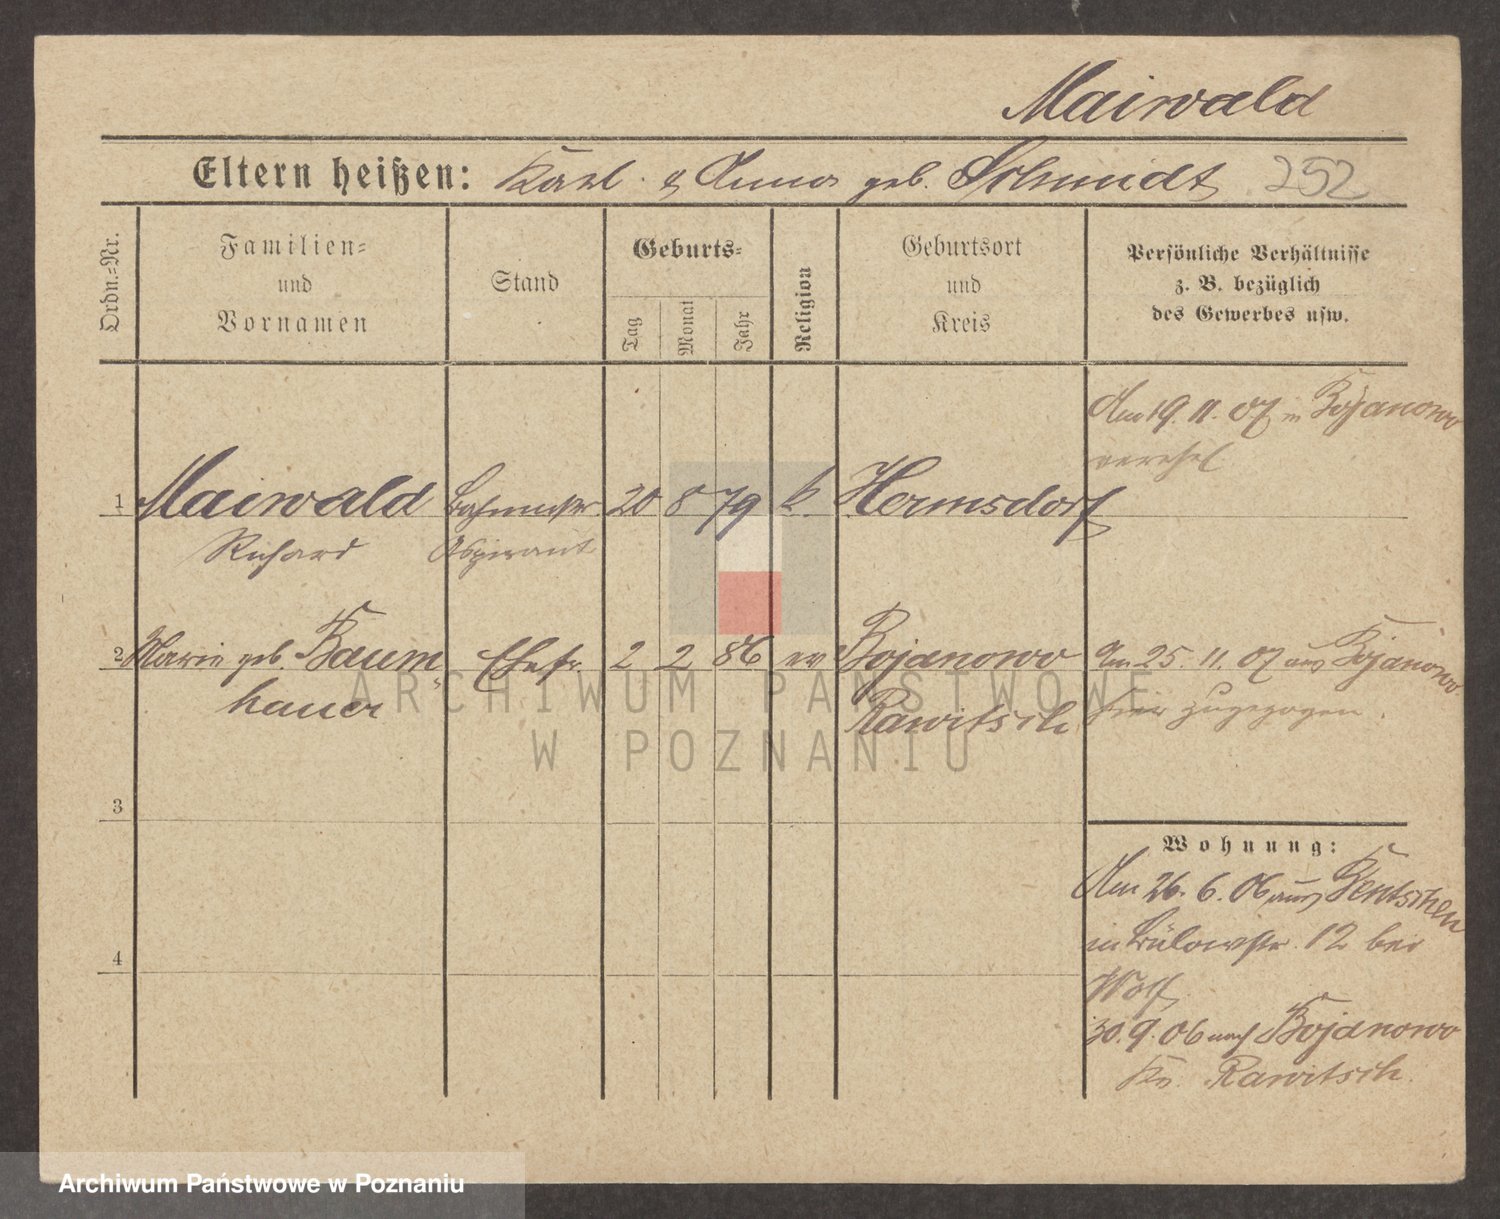 Maiwald
Eltern heißen: Karl & Anna geb. Schmidt 252
Ordn.=Nr.
Familien=
und
Vornamen
Stand
Geburts=
Tag
Monat
Jahr
Religion
Geburtsort
und
Kreis
Persönliche Verhältnisse
z. B. bezüglich
des Gewerbes usw.
Am 19. 11. 07 in Bojanowo
verehel
1 Maiwald 20 8 79 k. Hermsdorf
Richard Aspirant
2 Marie geb. Baum Ehefr. 2 2 86 ev Bojanowo Am 25. 11. 07 aus Bojanowo
hauer Rawitsch hier zugezogen.
3
Wohnung:
Am 26. 6. 06 aus Bentschen
in Bülowstr. 12 bei
Wolf
4
30. 9. 06 nach Bojanowo
Kr. Rawitsch.
ARCHIWUM PAŃSTWOWE
W POZNANIU
Archiwum Państwowe w Poznaniu